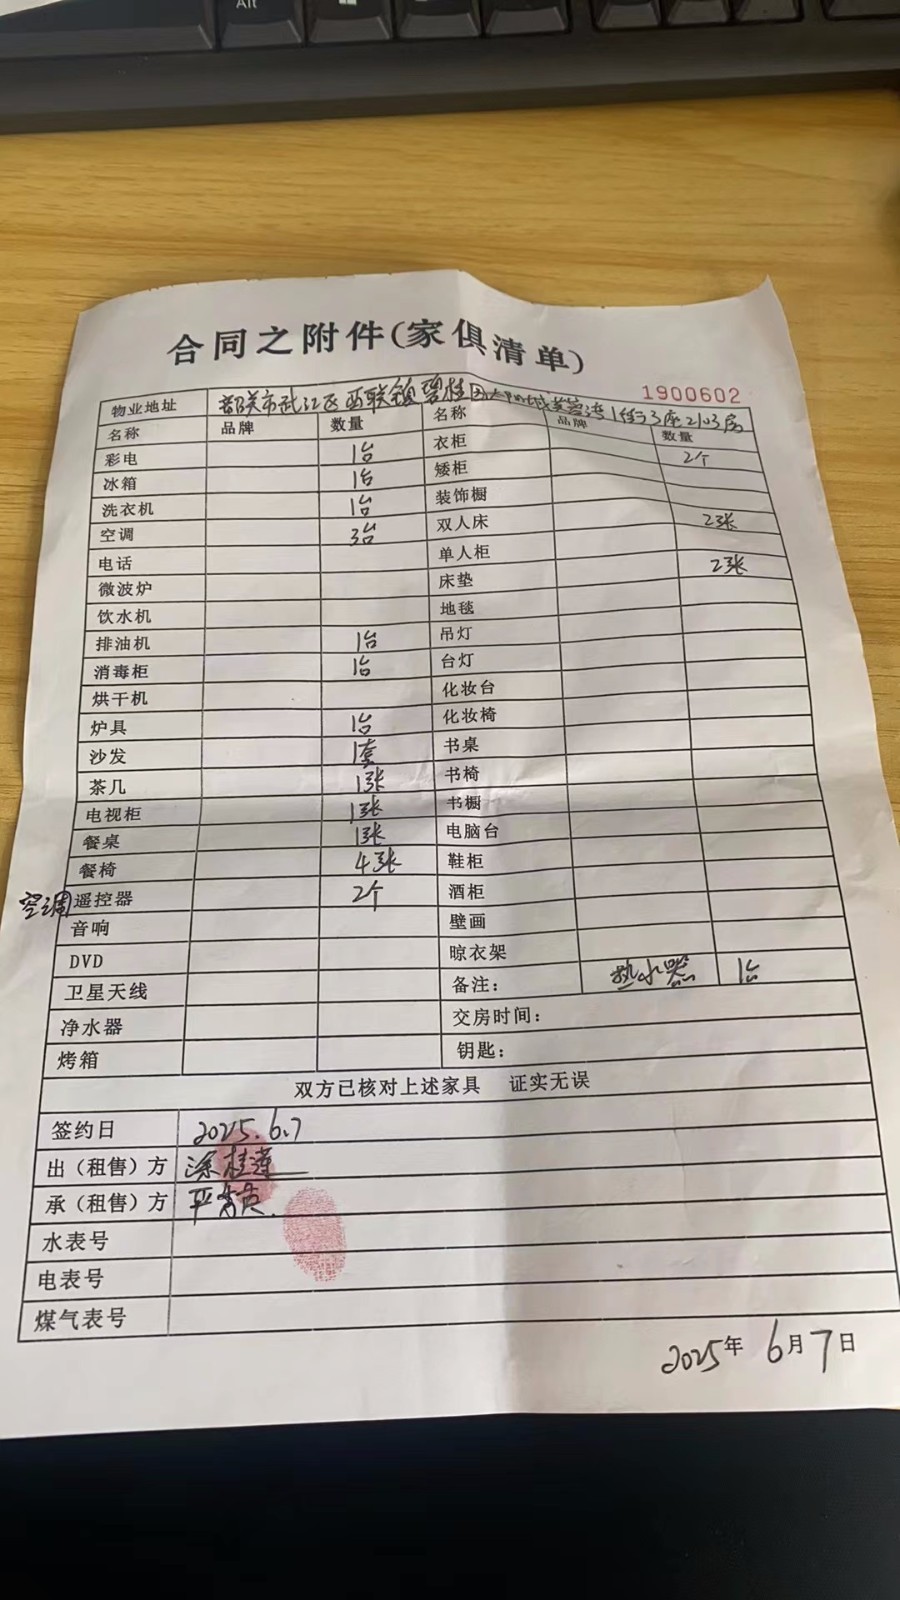 Alt
合同之附件(家俱清单)
1900602
物业地址 韶关市武江区西联镇碧桂园 芙蓉湾1街3座2103房
名称 品牌 数量 名称 品牌 数量
彩电 1台 衣柜 2个
冰箱 1台 矮柜
洗衣机 1台 装饰橱
空调 3台 双人床 2张
电话 单人柜
微波炉 床垫 2张
饮水机 地毯
排油机 1台 吊灯
消毒柜 1台 台灯
烘干机 化妆台
炉具 1台 化妆椅
沙发 1套 书桌
茶几 1张 书椅
电视柜 1张 书橱
餐桌 1张 电脑台
餐椅 4张 鞋柜
空调遥控器 2个 酒柜
音响 壁画
DVD 晾衣架
卫星天线 备注: 热水器 1台
净水器 交房时间:
烤箱 钥匙:
双方已核对上述家具 证实无误
签约日 2025.6.7
出(租售)方 涂桂莲
承(租售)方
水表号
电表号
煤气表号
2025年 6月7日